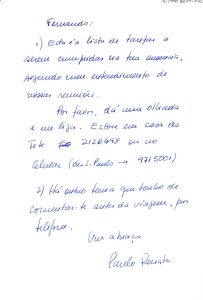 Fernando:
1) Esta é a lista de tarefas a
serem cumpridas na tua ausência,
segundo meu entendimento de
nossas reuniões.
Por favor, dá uma olhada
e me liga. Estou em casa da
Tete 2126498 ou no
celular (em S. Paulo → 9715001)
2) Há outro tema que tenho de
comentar-te antes da viagem, por
telefone.
Um abraço
Paulo